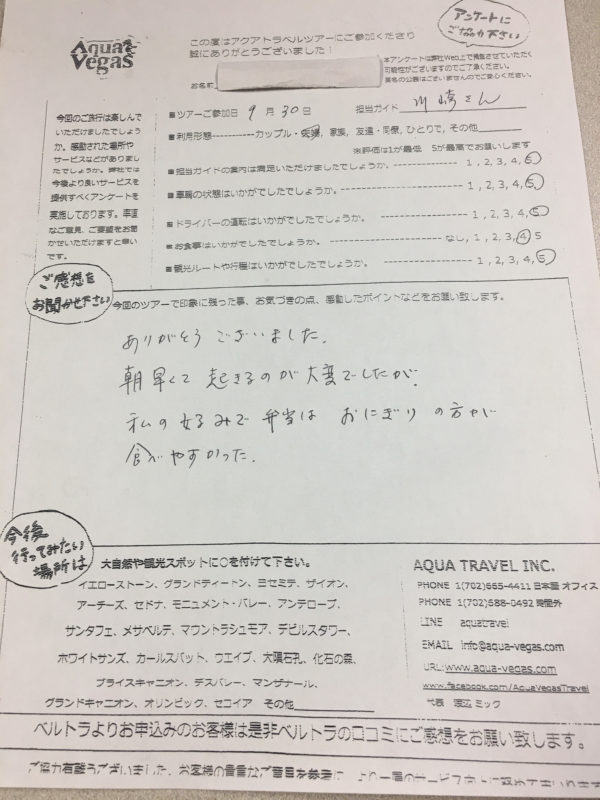 Aqua Vegas
この度はアクアトラベルツアーにご参加くださり
誠にありがとうございました！
アンケートに
ご協力下さい
お名前
本アンケートは弊社Web上で掲載させていただく
可能性がございますのでご了承ください。
匿名の公表はございませんのでご安心ください。
今回のご旅行は楽しんで
いただけましたでしょう
か。感動された場所や
サービスなどがありまし
たでしょうか。弊社では
今後より良いサービスを
提供すべくアンケートを
実施しております。率直
なご意見、ご要望をお聞
かせいただけますと幸い
です。
■ツアーご参加日 9 月 30 日 担当ガイド 川崎さん
■利用形態-----------カップル・夫婦, 家族, 友達・同僚, ひとりで, その他
※評価は1が最低 5が最高でお願いします
■担当ガイドの案内は満足いただけましたでしょうか。 1 , 2, 3, 4, 5
■車輌の状態はいかがでしたでしょうか。 1, 2, 3, 4, 5
■ドライバーの運転はいかがでしたでしょうか。 1 , 2, 3, 4, 5
■お食事はいかがでしたでしょうか。 なし, 1, 2, 3, 4, 5
■観光ルートや行程はいかがでしたでしょうか。 1 , 2, 3, 4, 5
ご感想を
お聞かせ下さい
今回のツアーで印象に残った事、お気づきの点、感動したポイントなどをお願い致します。
ありがとうございました。
朝早くて起きるのが大変でしたが、
私の好みで弁当はおにぎりの方が
食べやすかった。
今後
行ってみたい
場所は
大自然や観光スポットに○を付けて下さい。
イエローストーン、グランドティートン、ヨセミテ、ザイオン、
アーチーズ、セドナ、モニュメント・バレー、アンテロープ、
サンタフェ、メサベルテ、マウントラシュモア、デビルスタワー、
ホワイトサンズ、カールスバット、ウエイブ、大隕石孔、化石の森、
ブライスキャニオン、デスバレー、マンザナール、
グランドキャニオン、オリンピック、セコイア その他
AQUA TRAVEL INC.
PHONE 1(702)665-4411 日本語 オフィス
PHONE 1(702)688-0492 時間外
LINE aquatravel
EMAIL info@aqua-vegas.com
URL:www.aqua-vegas.com
www.facebook.com/AquaVegasTravel
代表 渡辺 ミック
ベルトラよりお申込みのお客様は是非ベルトラの口コミにご感想をお願い致します。
ご協力有難うございました、お客様の貴重なご意見を参考に